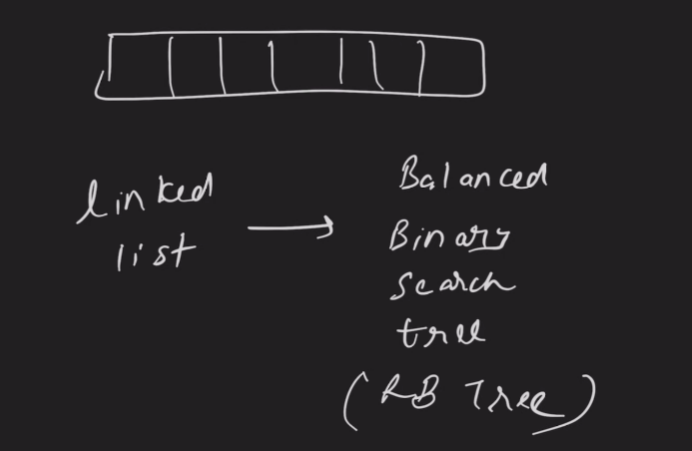 linked
list
Balanced
Binary
Search
tree
(RB Tree)